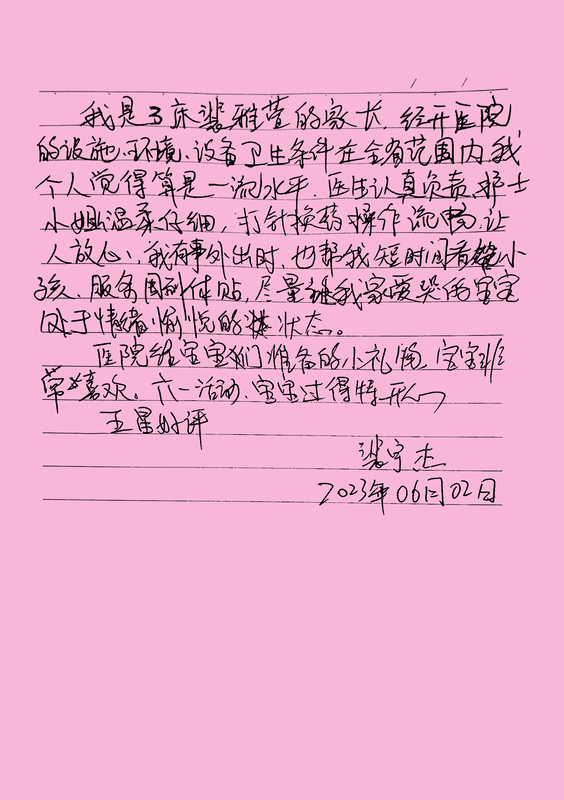 我是3床裴雅萱的家长,经开医院
的设施、环境、设备卫生条件在全省范围内,我
个人觉得算是一流水平,医生认真负责,护士
小姐温柔仔细,打针换药操作流畅,让
人放心,我有事外出时,也帮我短时间看小
孩,服务周到体贴,尽量让我家爱哭的宝宝
处于情绪愉悦的状态。
医院给宝宝们准备的小礼物,宝宝非
常喜欢。六一活动,宝宝过得特开心
五星好评
裴宇杰
2023年06月02日